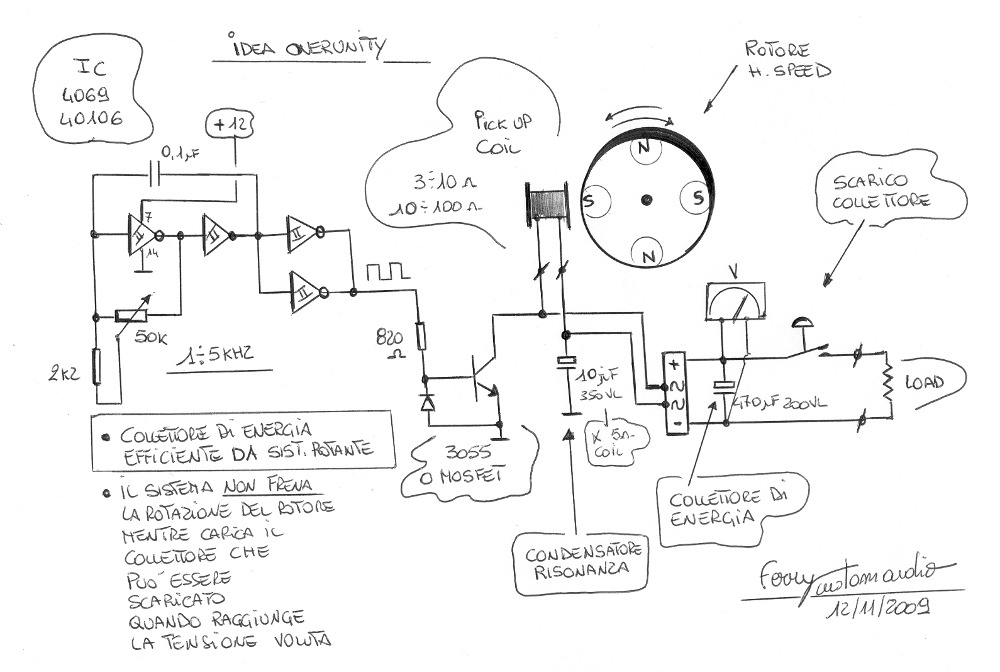 IDEA OVERUNITY
IC
4069
40106
+12
0,1µF
7
14
50K
2KΩ
1÷5KHZ
820
Ω
PICK UP
COIL
3÷10 Ω
10÷100 Ω
ROTORE
H. SPEED
N
S
S
N
SCARICO
COLLETTORE
V
LOAD
+
-
10µF
350VL
470µF 200VL
X 5Ω
COIL
3055
O MOSFET
COLLETTORE DI
ENERGIA
CONDENSATORE
RISONANZA
• COLLETTORE DI ENERGIA
EFFICIENTE DA SIST. ROTANTE
• IL SISTEMA NON FRENA
LA ROTAZIONE DEL ROTORE
MENTRE CARICA IL
COLLETTORE CHE
PUO' ESSERE
SCARICATO
QUANDO RAGGIUNGE
LA TENSIONE VOLUTA
12/11/2009